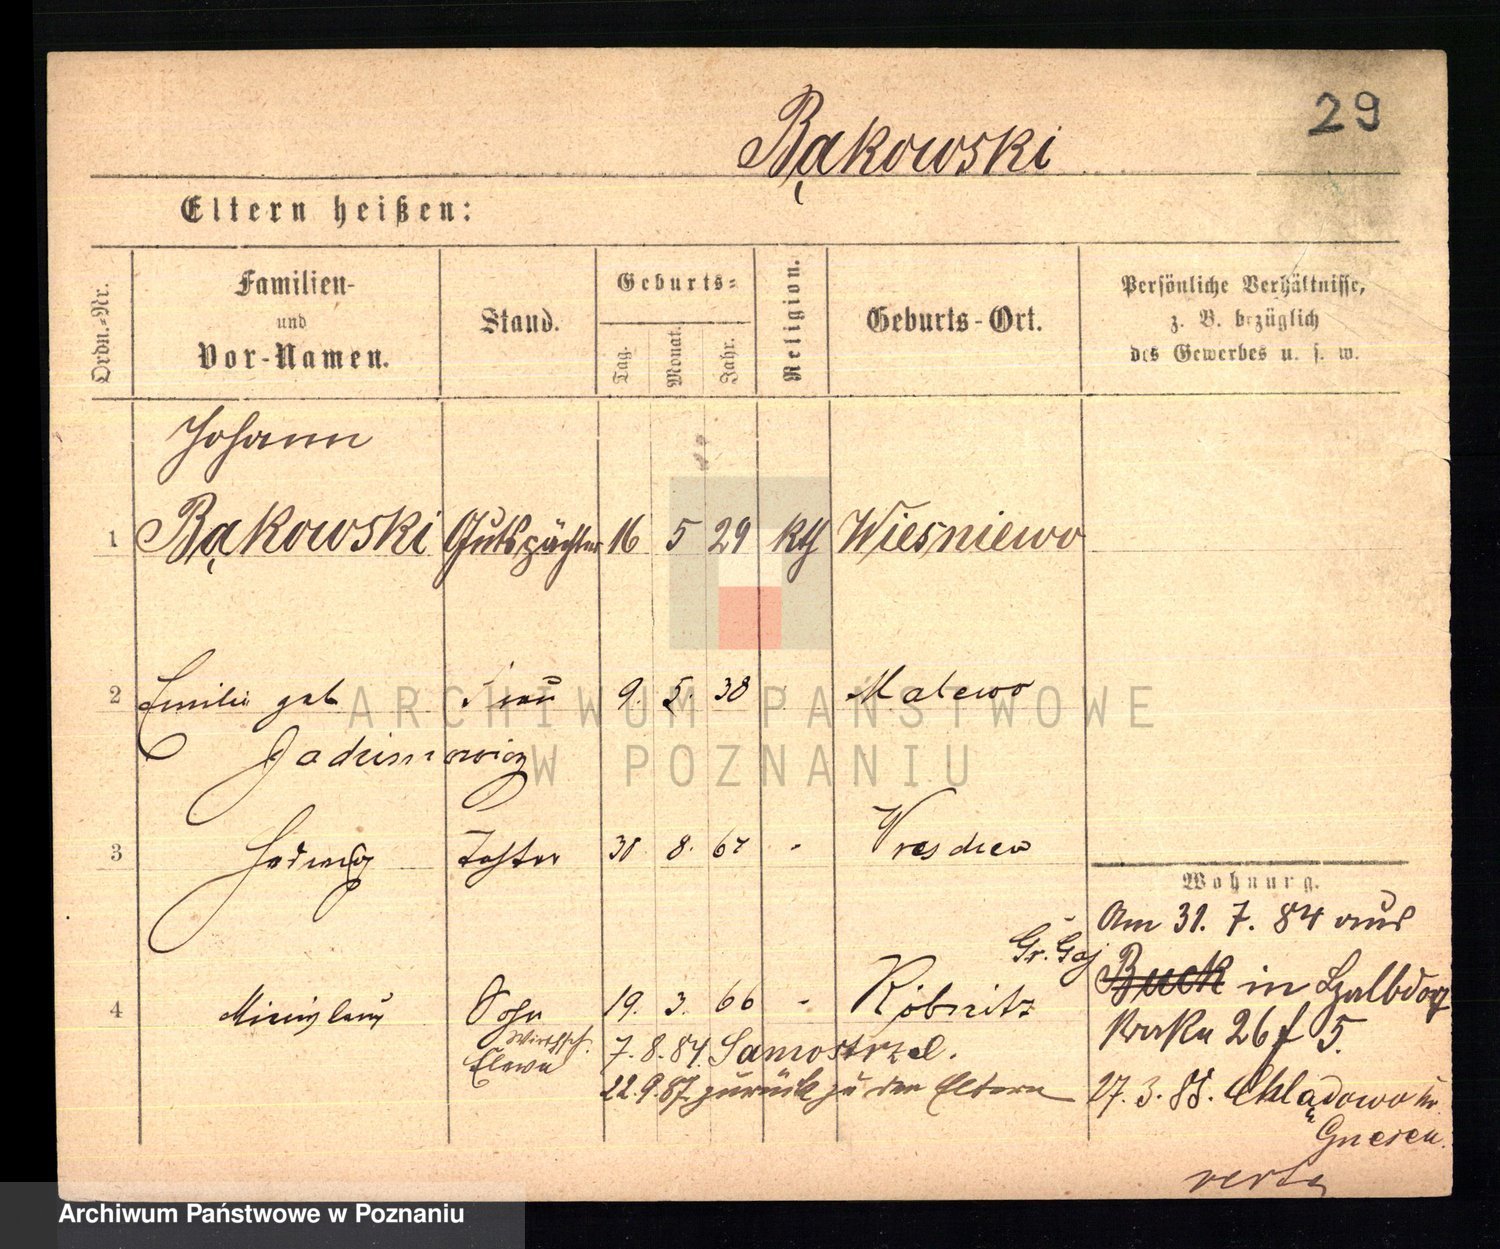 29
Bąkowski
Eltern heißen:
Ordn.-Nr.
Familien-
und
Vor-Namen.
Stand.
Geburts-
Tag.
Monat.
Jahr.
Religion.
Geburts-Ort.
Persönliche Verhältnisse,
z. B. bezüglich
des Gewerbes u. s. w.
Johann
1 Bąkowski Gutspächter 16 5 29 kth Wiesniewo
2 Emilie geb Frau 9. 5. 38 Malewo
3 Hedwig Tochter 8. 67 -
Wohnung.
Am 31. 7. 84 aus
Gr. Gaj
Buck in
26 f 5.
4 Sohn 19. 3. 66 -
Wirthsch.
Eleve 7. 8. 84. Samostrzel.
22. 9. 87 zurück zu den Eltern
27. 3. Chlądowo
Gnesen.
verte
ARCHIWUM PAŃSTWOWE
W POZNANIU
Archiwum Państwowe w Poznaniu